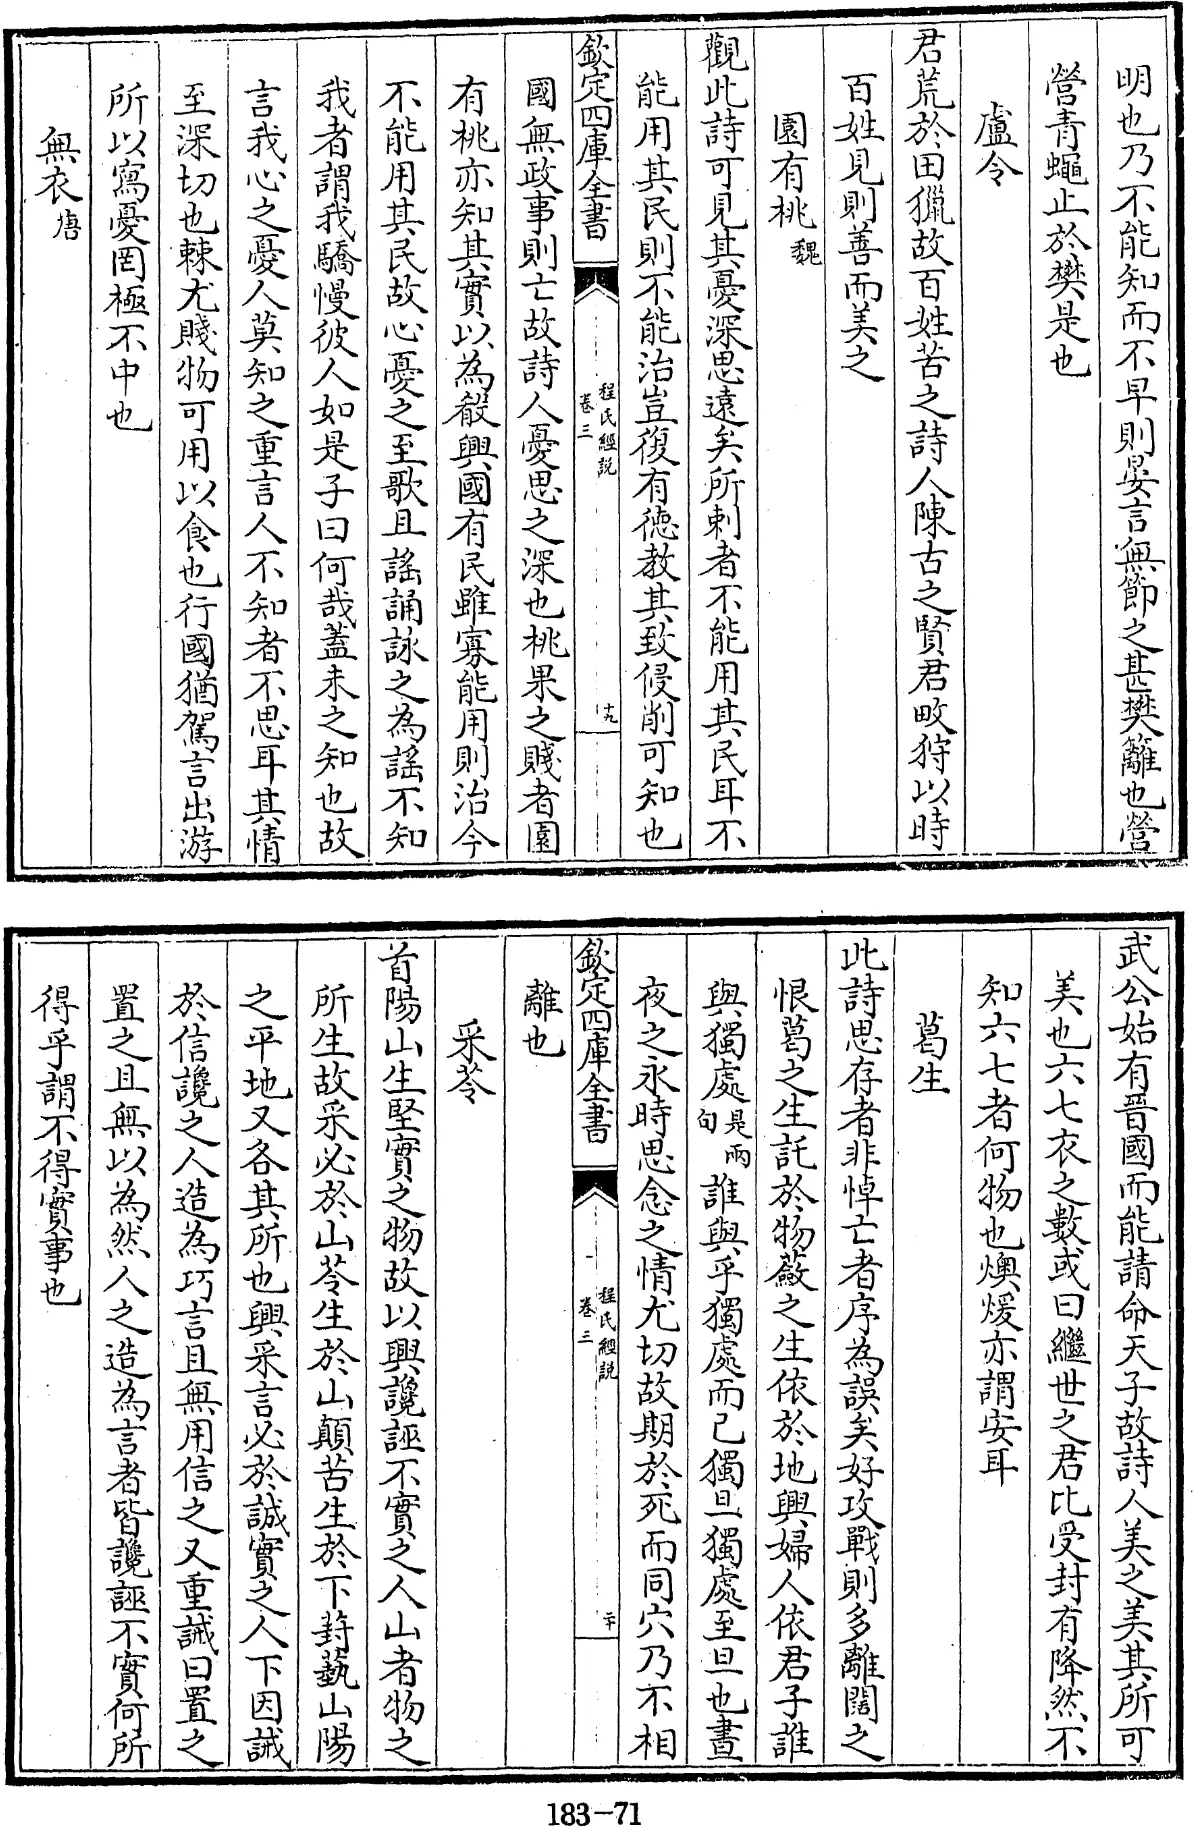 明也乃不能知而不早則晏言無節之甚樊籬也營
營青蠅止於樊是也
盧令
君荒於田獵故百姓苦之詩人陳古之賢君畋狩以時
百姓見則善而美之
園有桃魏
觀此詩可見其憂深思遠矣所刺者不能用其民耳不
能用其民則不能治豈復有德教其致侵削可知也
欽定四庫全書
程氏經說
卷三
十九
國無政事則亡故詩人憂思之深也桃果之賤者園
有桃亦知其實以為殽興國有民雖寡能用則治今
不能用其民故心憂之至歌且謠誦詠之為謠不知
我者謂我驕慢彼人如是子曰何哉蓋未之知也故
言我心之憂人莫知之重言人不知者不思耳其情
至深切也棘尤賤物可用以食也行國猶駕言出游
所以寫憂罔極不中也
無衣唐
武公始有晉國而能請命天子故詩人美之美其所可
美也六七衣之數或曰繼世之君比受封有降然不
知六七者何物也燠煖亦謂安耳
葛生
此詩思存者非悼亡者序為誤矣好攻戰則多離闊之
恨葛之生託於物蘞之生依於地興婦人依君子誰
與獨處是兩句誰與乎獨處而已獨旦獨處至旦也晝
夜之永時思念之情尤切故期於死而同穴乃不相
欽定四庫全書
程氏經說
卷三
二十
離也
采苓
首陽山生堅實之物故以興讒誣不實之人山者物之
所生故采必於山苓生於山顛苦生於下葑蓺山陽
之平地又各其所也興采言必於誠實之人下因誡
於信讒之人造為巧言且無用信之又重誡曰置之
置之且無以為然人之造為言者皆讒誣不實何所
得乎謂不得實事也
183-71